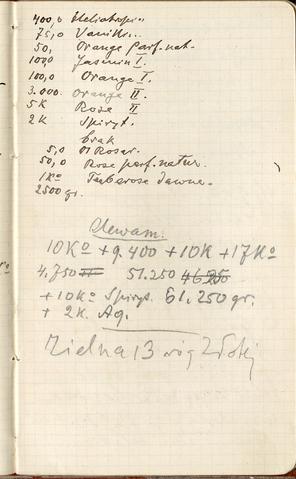 400,0 Heliotropin
75,0 Vanilli...
50, Orange parf. nat.
100,0 Jasmin I.
100,0 Orange I.
3.000. Orange II.
5K Rose II
2K Spiryt.
brak
5,0 Ol Rosar.
50,0 Rose parf. natur.
1Ko Tuberose dawne.
2500 gr.
10Ko + 9.400 + 10K + 17Ko
4,750 51.250 46.250
+ 10Ko Spiryt. 61.250 gr.
+ 2K. Aq.
Zielna 13 róg Złotej